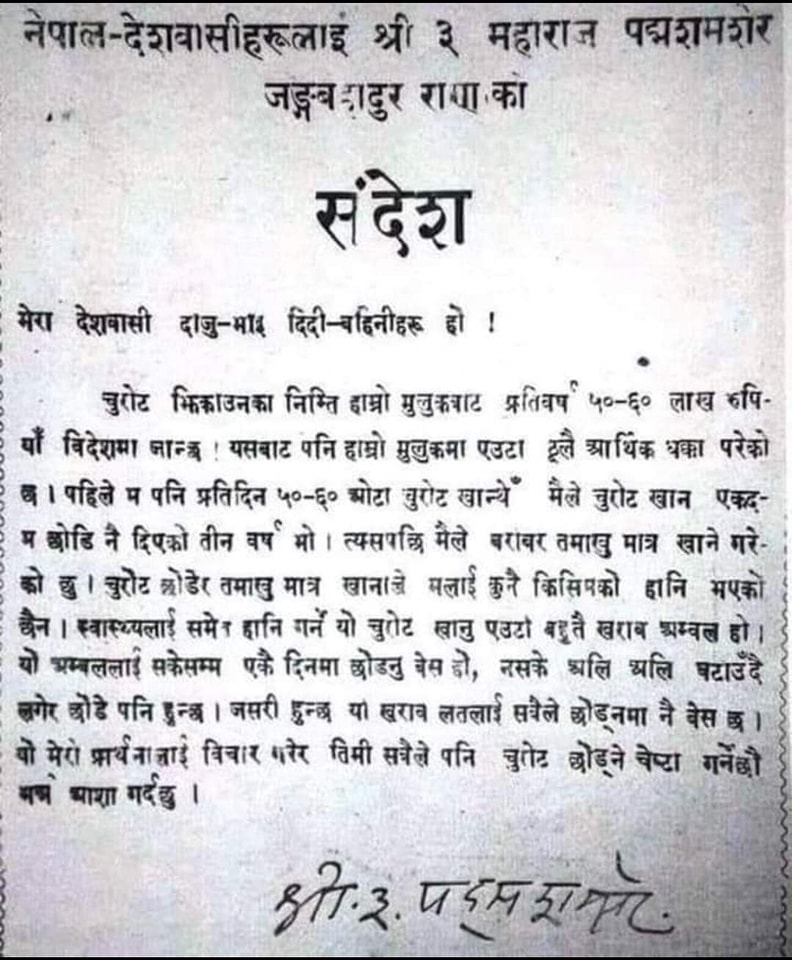 नेपाल-देशवासीहरूलाई श्री ३ महाराज पद्मशमशेर
जङ्गबहादुर राणाको
संदेश
मेरा देशवासी दाजु-भाइ दिदी-बहिनीहरू हो !
चुरोट झिकाउनका निम्ति हाम्रो मुलुकबाट प्रतिवर्ष ५०-६० लाख रुपि-
याँ विदेशमा जान्छ ! यसबाट पनि हाम्रो मुलुकमा एउटा ठूलै आर्थिक धक्का परेको
छ । पहिले म पनि प्रतिदिन ५०-६० ओटा चुरोट खान्थेँ मैले चुरोट खान एकद-
म छोडि नै दिएको तीन वर्ष भो । त्यसपछि मैले बराबर तमाखु मात्र खाने गरे-
को छु । चुरोट छोडेर तमाखु मात्र खानाले मलाई कुनै किसिमको हानि भएको
छैन । स्वास्थ्यलाई समेत हानि गर्ने यो चुरोट खानु एउटा बहुतै खराब अम्बल हो ।
यो अम्बललाई सकेसम्म एकै दिनमा छोडनु बेस हो, नसके अलि अलि घटाउँदै
लगेर छोडे पनि हुन्छ । जसरी हुन्छ यो खराब लतलाई सबैले छोड्नमा नै बेस छ ।
यो मेरो प्रार्थनालाई विचार गरेर तिमी सबैले पनि चुरोट छोड्ने चेष्टा गर्नेछौ
भन्ने आशा गर्दछु ।
श्री. ३. पद्मशमशेर.